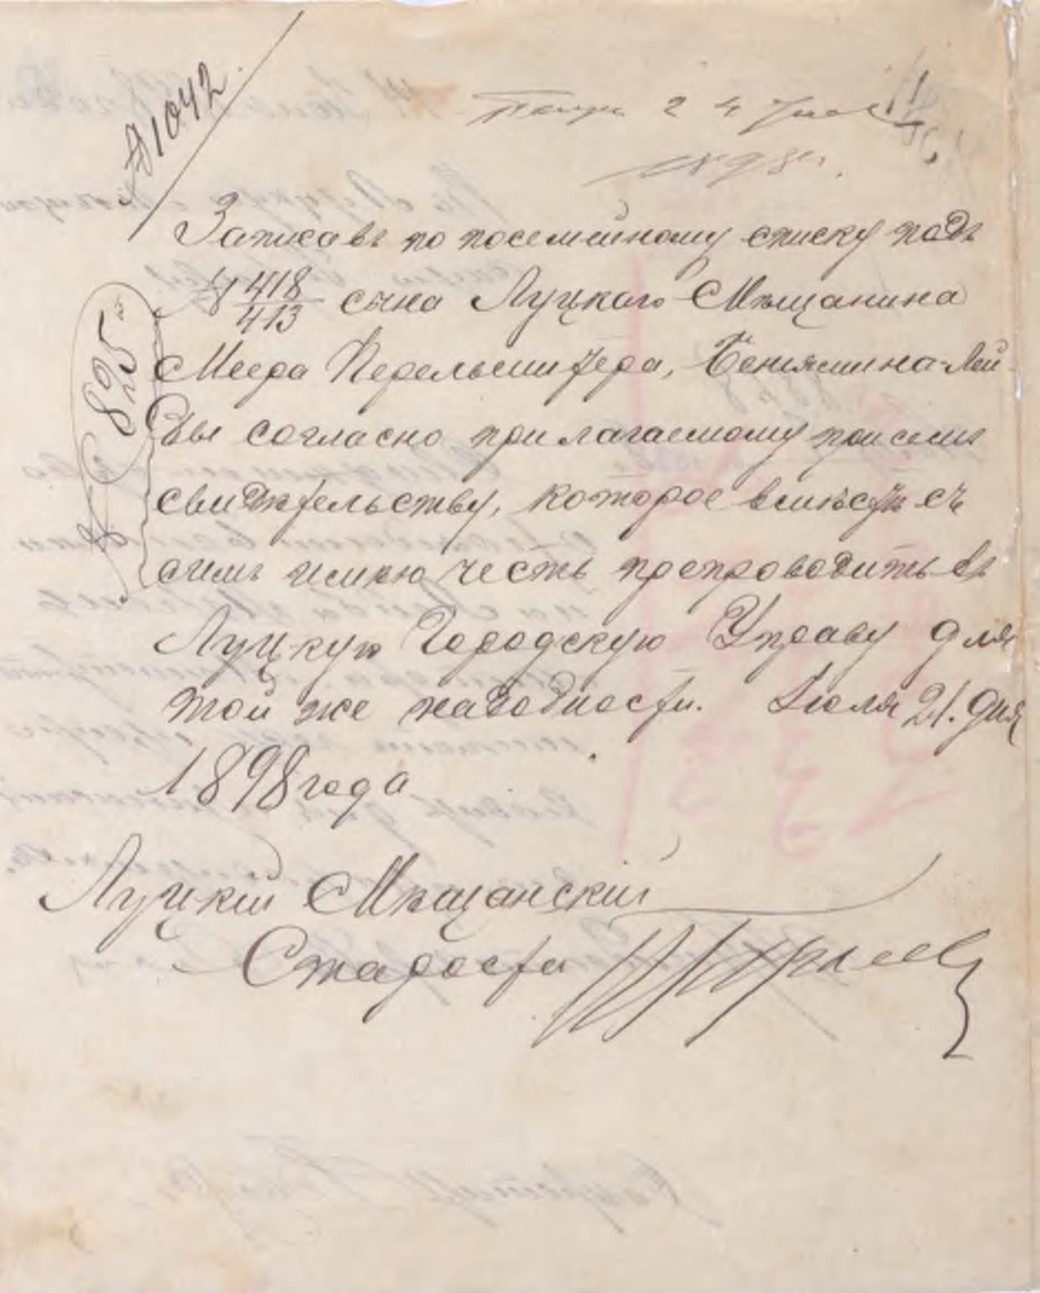 № 1042.
24 Июля
1898 г.
Записавъ по посемейному списку подъ
№ 418/413 сына Луцкаго Мѣщанина
Меера Перельштейера, Беньямина-Лей-
бы согласно прилагаемому при семъ
свидѣтельству, которое вмѣстѣ съ
симъ имѣю честь препроводить въ
Луцкую Городскую Управу для
той же надобности. Іюля 21. дня
1898 года
№ 825
Луцкій Мѣщанскій
Староста